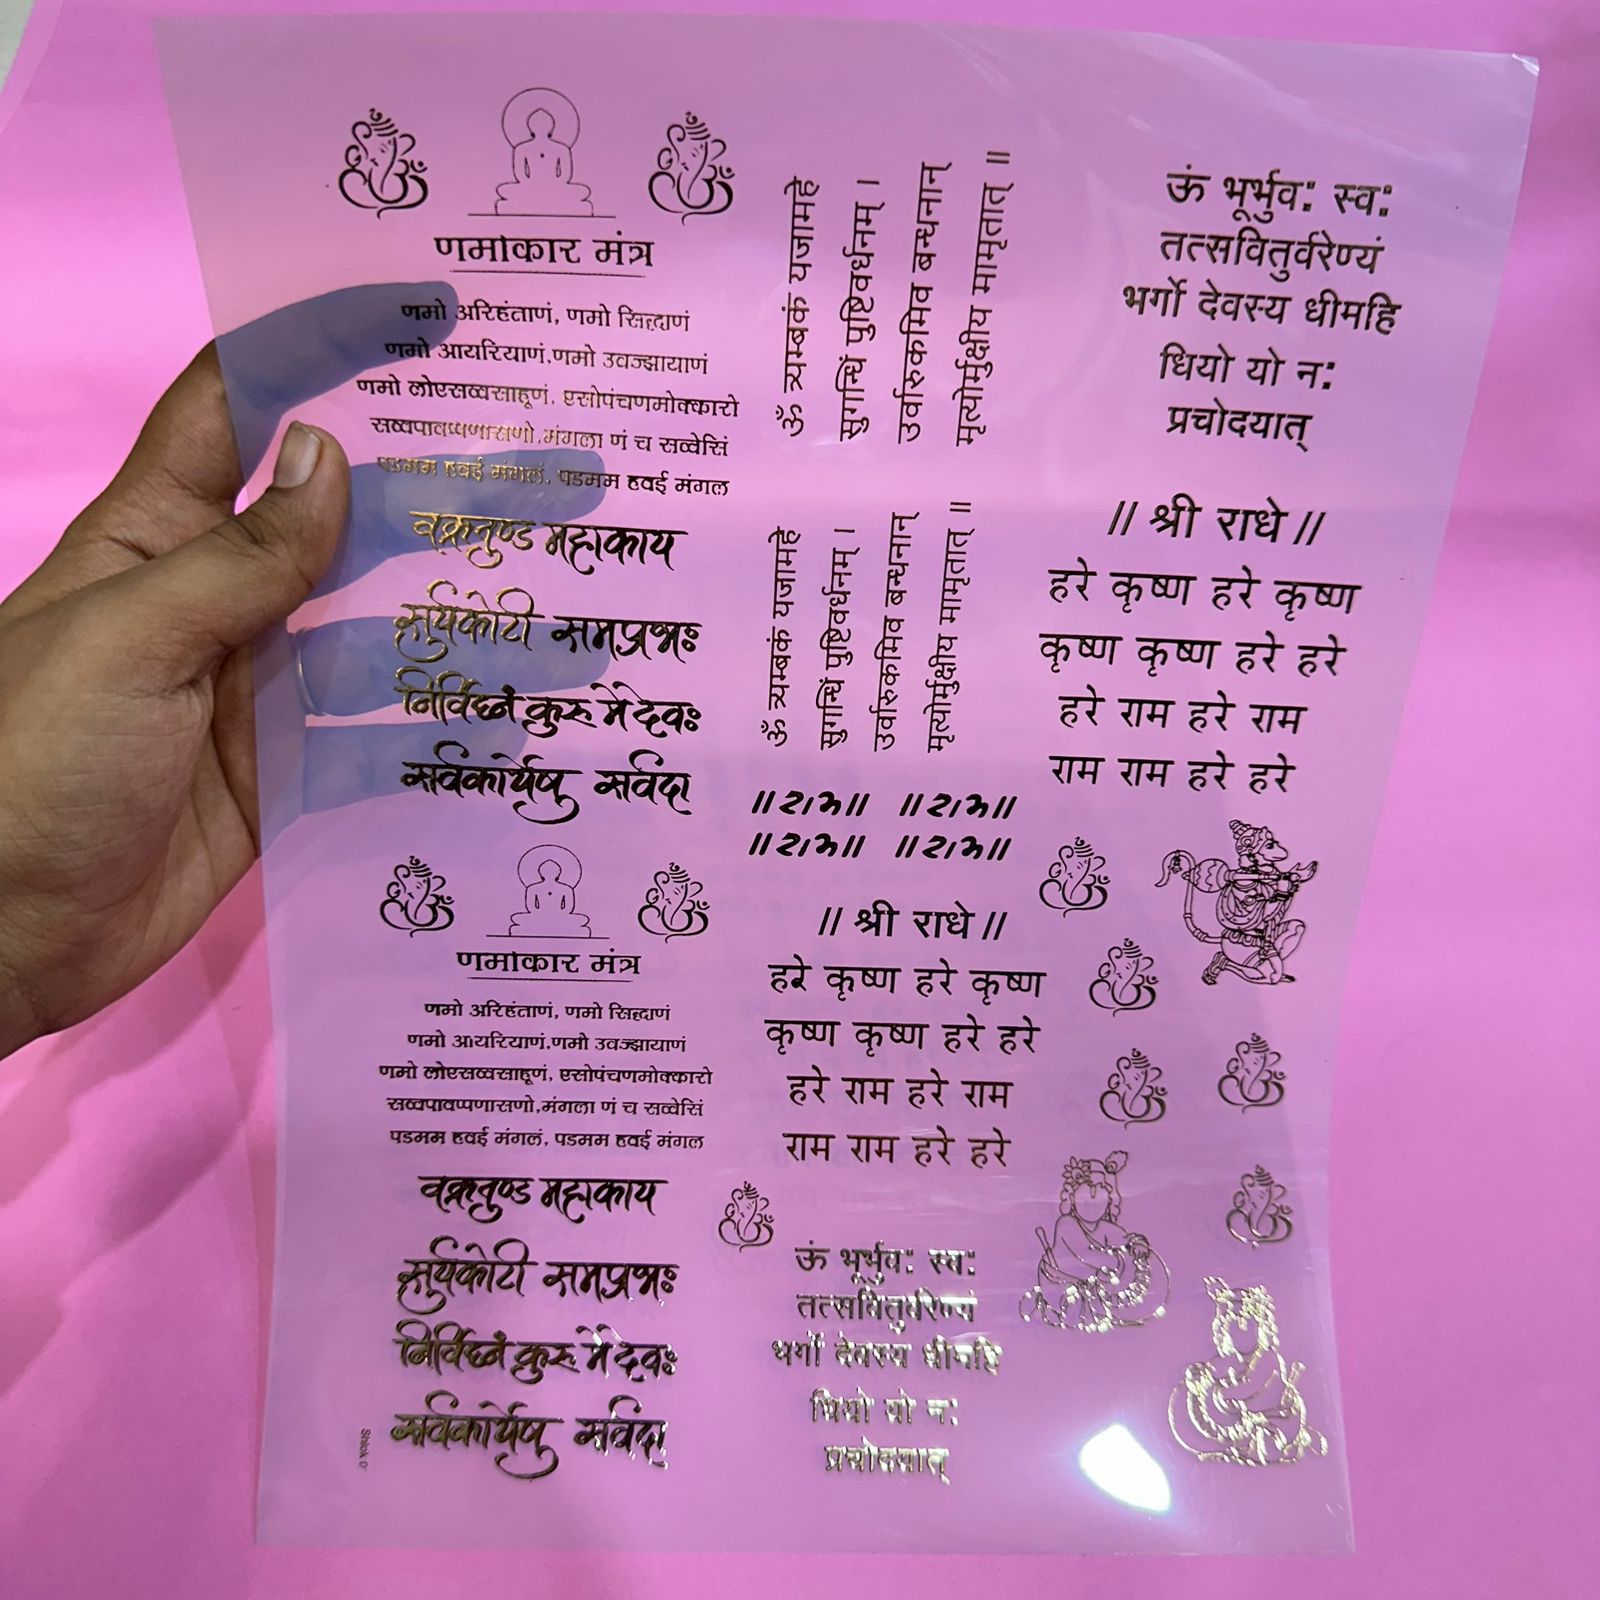 णमोकार मंत्र
णमो अरिहंताणं, णमो सिद्धाणं
णमो आयरियाणं,णमो उवज्झायाणं
णमो लोएसव्वसाहूणं, एसोपंचणमोक्कारो
सव्वपावप्पणासणो,मंगला णं च सव्वेसिं
पडमम हवई मंगलं, पडमम हवई मंगल
वक्रतुण्ड महाकाय
सुर्यकोटी समप्रभः
निर्विघ्नं कुरु मे देवः
सर्वकार्येषु सर्वदा
णमोकार मंत्र
णमो अरिहंताणं, णमो सिद्धाणं
णमो आयरियाणं,णमो उवज्झायाणं
णमो लोएसव्वसाहूणं, एसोपंचणमोक्कारो
सव्वपावप्पणासणो,मंगला णं च सव्वेसिं
पडमम हवई मंगलं, पडमम हवई मंगल
वक्रतुण्ड महाकाय
सुर्यकोटी समप्रभः
निर्विघ्नं कुरु मे देवः
सर्वकार्येषु सर्वदा
ॐ त्र्यम्बकं यजामहे
सुगन्धिं पुष्टिवर्धनम् ।
उर्वारुकमिव बन्धनान्
मृत्योर्मुक्षीय मामृतात् ॥
ॐ त्र्यम्बकं यजामहे
सुगन्धिं पुष्टिवर्धनम् ।
उर्वारुकमिव बन्धनान्
मृत्योर्मुक्षीय मामृतात् ॥
॥राम॥ ॥राम॥
॥राम॥ ॥राम॥
// श्री राधे //
हरे कृष्ण हरे कृष्ण
कृष्ण कृष्ण हरे हरे
हरे राम हरे राम
राम राम हरे हरे
ऊं भूर्भुव: स्व:
तत्सवितुर्वरेण्यं
भर्गो देवस्य धीमहि
धियो यो न:
प्रचोदयात्
ऊं भूर्भुव: स्व:
तत्सवितुर्वरेण्यं
भर्गो देवस्य धीमहि
धियो यो न:
प्रचोदयात्
// श्री राधे //
हरे कृष्ण हरे कृष्ण
कृष्ण कृष्ण हरे हरे
हरे राम हरे राम
राम राम हरे हरे